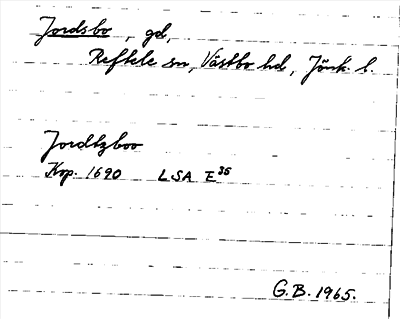 Jordsbo, gd,
Reftele sn, Västbo hd, Jönk. l.
Jordtzboo
Kop. 1690 LSA E 36
G.B. 1965.